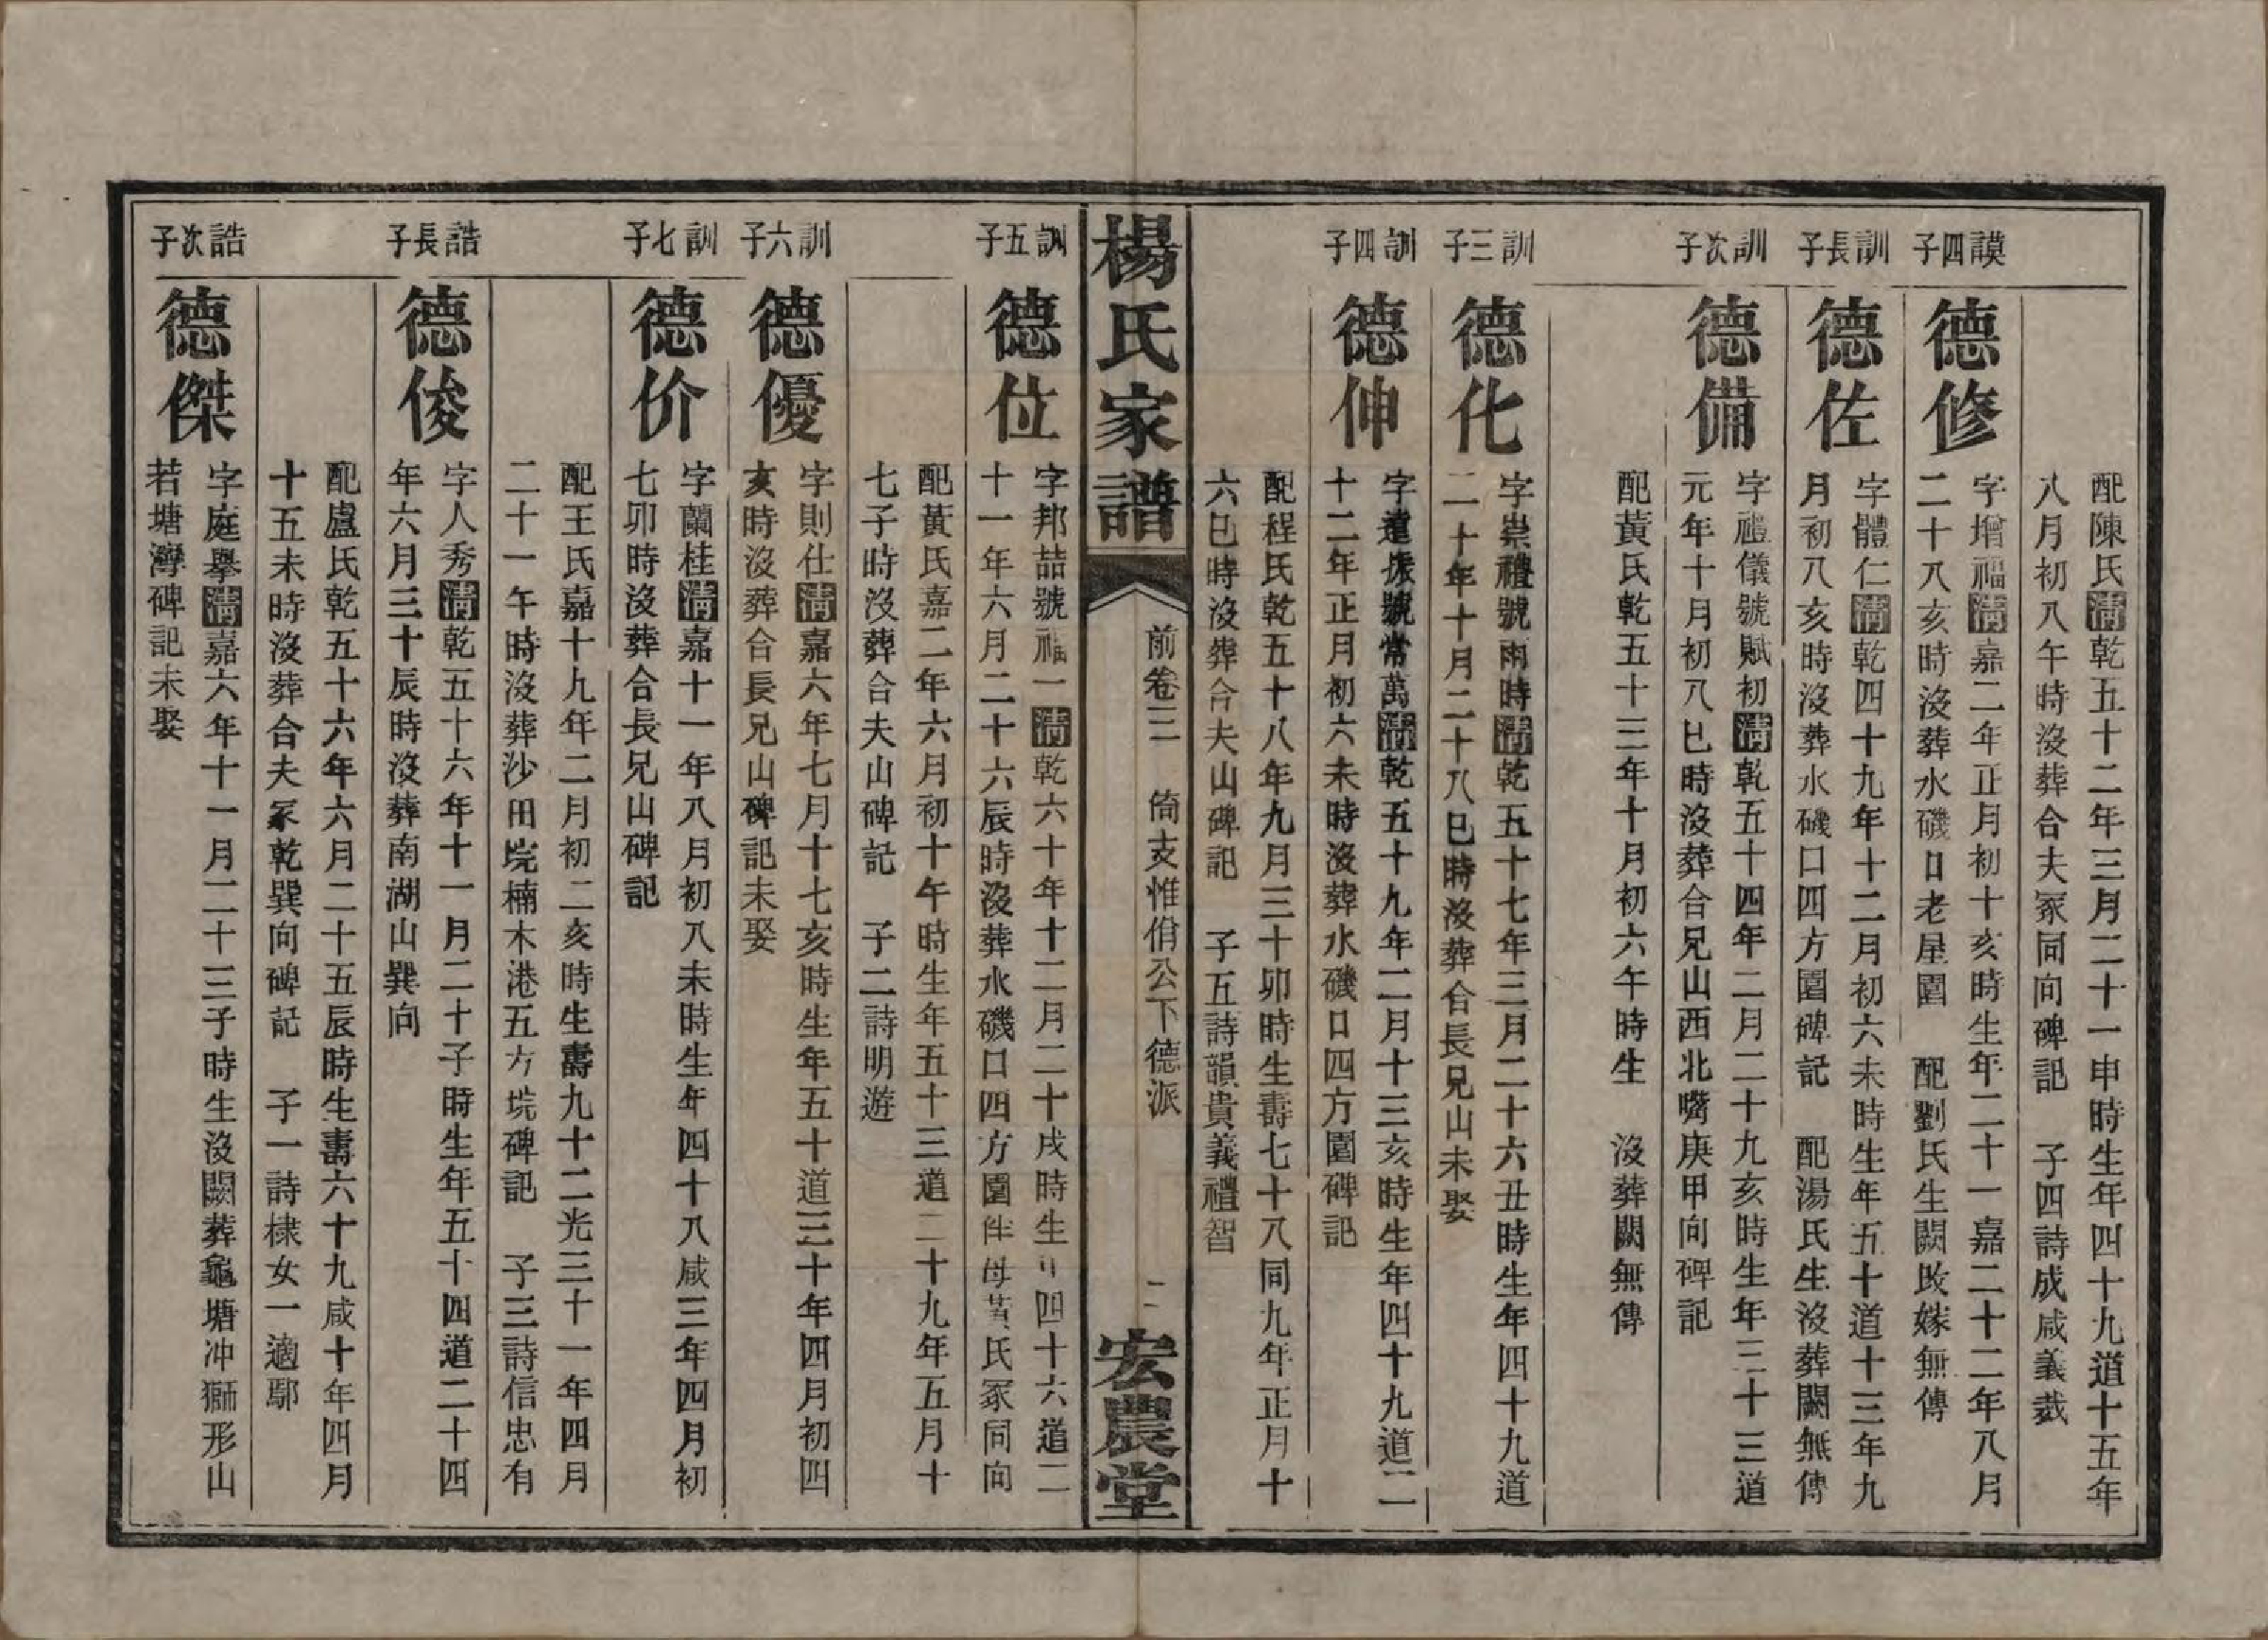 配陳氏清乾五十二年三月二十一申時生年四十九道十五年
八月初八午時沒葬合夫冢同向碑記　子四詩成咸義裁
謨四子
德修
字增福清嘉二年正月初十亥時生年二十一嘉二十二年八月
二十八亥時沒葬水磯口老屋圍　配劉氏生闕改嫁無傳
訓長子
德佐
字體仁清乾四十九年十二月初六未時生年五十道十三年九
月初八亥時沒葬水磯口四方圍碑記　配湯氏生沒葬闕無傳
訓次子
德備
字禮儀號賦初清乾五十四年二月二十九亥時生年三十三道
元年十月初八巳時沒葬合兄山西北嘴庚甲向碑記
配黃氏乾五十三年十月初六午時生　沒葬闕無傳
訓三子
德化
字崇禮號雨時清乾五十七年三月二十六丑時生年四十九道
二十年十月二十八巳時沒葬合長兄山未娶
訓四子
德伸
字遣振號常萬清乾五十九年二月十三亥時生年四十九道二
十二年正月初六未時沒葬水磯口四方圍碑記
配程氏乾五十八年九月三十卯時生壽七十八同九年正月十
六巳時沒葬合夫山碑記　子五詩韻貴義禮智
楊氏家譜
前卷三　脩支惟俏公下德派
二
宏農堂
訓五子
德位
字邦喆號福一清乾六十年十二月二十戌時生年四十六道二
十一年六月二十六辰時沒葬水磯口四方圍伴母黃氏冢同向
配黃氏嘉二年六月初十午時生年五十三道二十九年五月十
七子時沒葬合夫山碑記　子二詩明遊
訓六子
德優
字則仕清嘉六年七月十七亥時生年五十道三十年四月初四
亥時沒葬合長兄山碑記未娶
訓七子
德价
字蘭桂清嘉十一年八月初八未時生年四十八咸三年四月初
七卯時沒葬合長兄山碑記
配王氏嘉十九年二月初二亥時生壽九十二光三十一年四月
二十一午時沒葬沙田垸楠木港五方垸碑記　子三詩信忠有
誥長子
德俊
字人秀清乾五十六年十一月二十子時生年五十四道二十四
年六月三十辰時沒葬南湖山巽向
配盧氏乾五十六年六月二十五辰時生壽六十九咸十年四月
十五未時沒葬合夫冢乾巽向碑記　子一詩棣女一適鄢
誥次子
德傑
字庭舉清嘉六年十一月二十三子時生沒闕葬龜塘冲獅形山
若塘灣碑記未娶